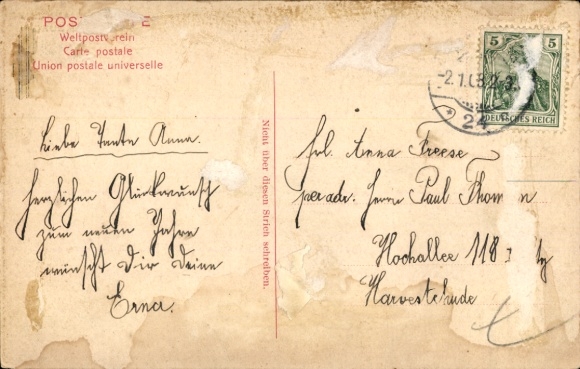 POS E
Weltpostverein
Carte postale
Union postale universelle
5 5
DEUTSCHES REICH
24
Liebe Tante Anna.
herzlichen Glückwunsch
zum neuen Jahre
wünscht Dir Deine
Erna.
Nicht über diesen Strich schreiben.
Frl. Anna Freese
per adr. Herrn Paul Thomsen
Hochallee 118
Harvestehude